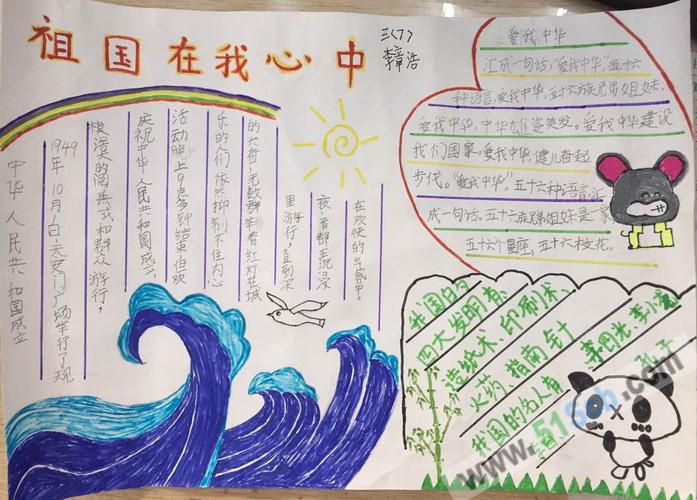 祖国在我心中
三〈7〉
李章浩
中华人民共和国成立
1949年10月1日天安门广场举行了规
模浩大的阅兵式和群众游行,
庆祝中华人民共和国成立,
活动晚上9点多钟结束,但欢
乐的人们依然抑制不住内心
的兴奋,无数群举着红灯在城
里游行,直到深
夜,首都还沉浸
在欢快的气氛中。
爱我中华
汇成一句话:"爱我中华",五十六
种语言,爱我中华,五十六族兄弟姐妹,
爱我中华,中华雄姿英发。爱我中华建设
我们国家。爱我中华,健儿奋起
步伐。"爱我中华"。五十六种语言,汇
成一句话,五十六族兄弟姐妹是一家
五十六个星座,五十六枝花。
我国的
四大发明有
造纸术、印刷术、
火药、指南针
我国的名人有
李四光、李小龙
孔子